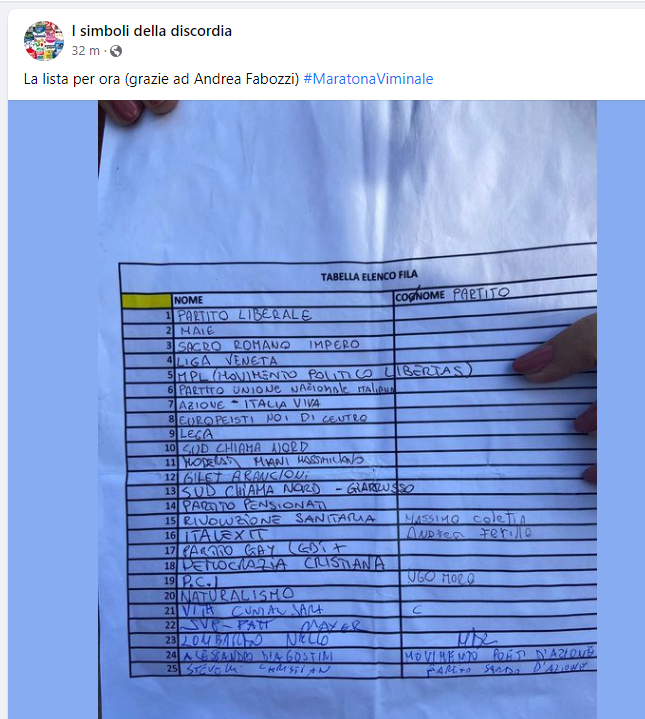 I simboli della discordia
32 m ·
La lista per ora (grazie ad Andrea Fabozzi) #MaratonaViminale
TABELLA ELENCO FILA
NOME COGNOME PARTITO
1 PARTITO LIBERALE
2 MAIE
3 SACRO ROMANO IMPERO
4 LIGA VENETA
5 MPL (MOVIMENTO POLITICO LIBERTAS)
6 PARTITO UNIONE NAZIONALE ITALIANA
7 AZIONE - ITALIA VIVA
8 EUROPEISTI NOI DI CENTRO
9 LEGA
10 SUD CHIAMA NORD
11 MODERATI MIANI MASSIMILIANO
12 GILET ARANCIONI
13 SUD CHIAMA NORD - GIARRUSSO
14 PARTITO PENSIONATI
15 RIVOLUZIONE SANITARIA MASSIMO Coletta
16 ITALEXIT ANDREA Ferillo
17 PARTITO GAY LGBT +
18 DEMOCRAZIA CRISTIANA
19 P.C.I UGO MORO
20 NATURALISMO
21 VITA CUNIAL SARA C
22 SVP - PATT MAYER
23 LOMBARDO NELLO
24 ALESSANDRO D'AGOSTINI MOVIMENTO POETI D'AZIONE
25 CHRISTIAN PARTITO SARDO D'AZIONE